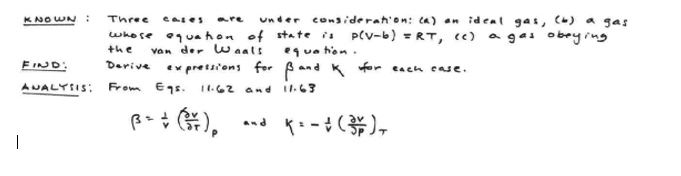 KNOWN : Three cases are under consideration: (a) an ideal gas, (b) a gas
whose equation of state is p(v-b) = RT, (c) a gas obeying
the van der Waals equation.
FIND: Derive expressions for β and κ for each case.
ANALYSIS: From Eqs. 11.62 and 11.63
β = 1/v (∂v/∂T)p and κ = - 1/v (∂v/∂p)T